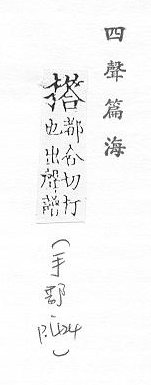 四聲篇海
搭
都合切打
也出聲譜
(手部 P.424)